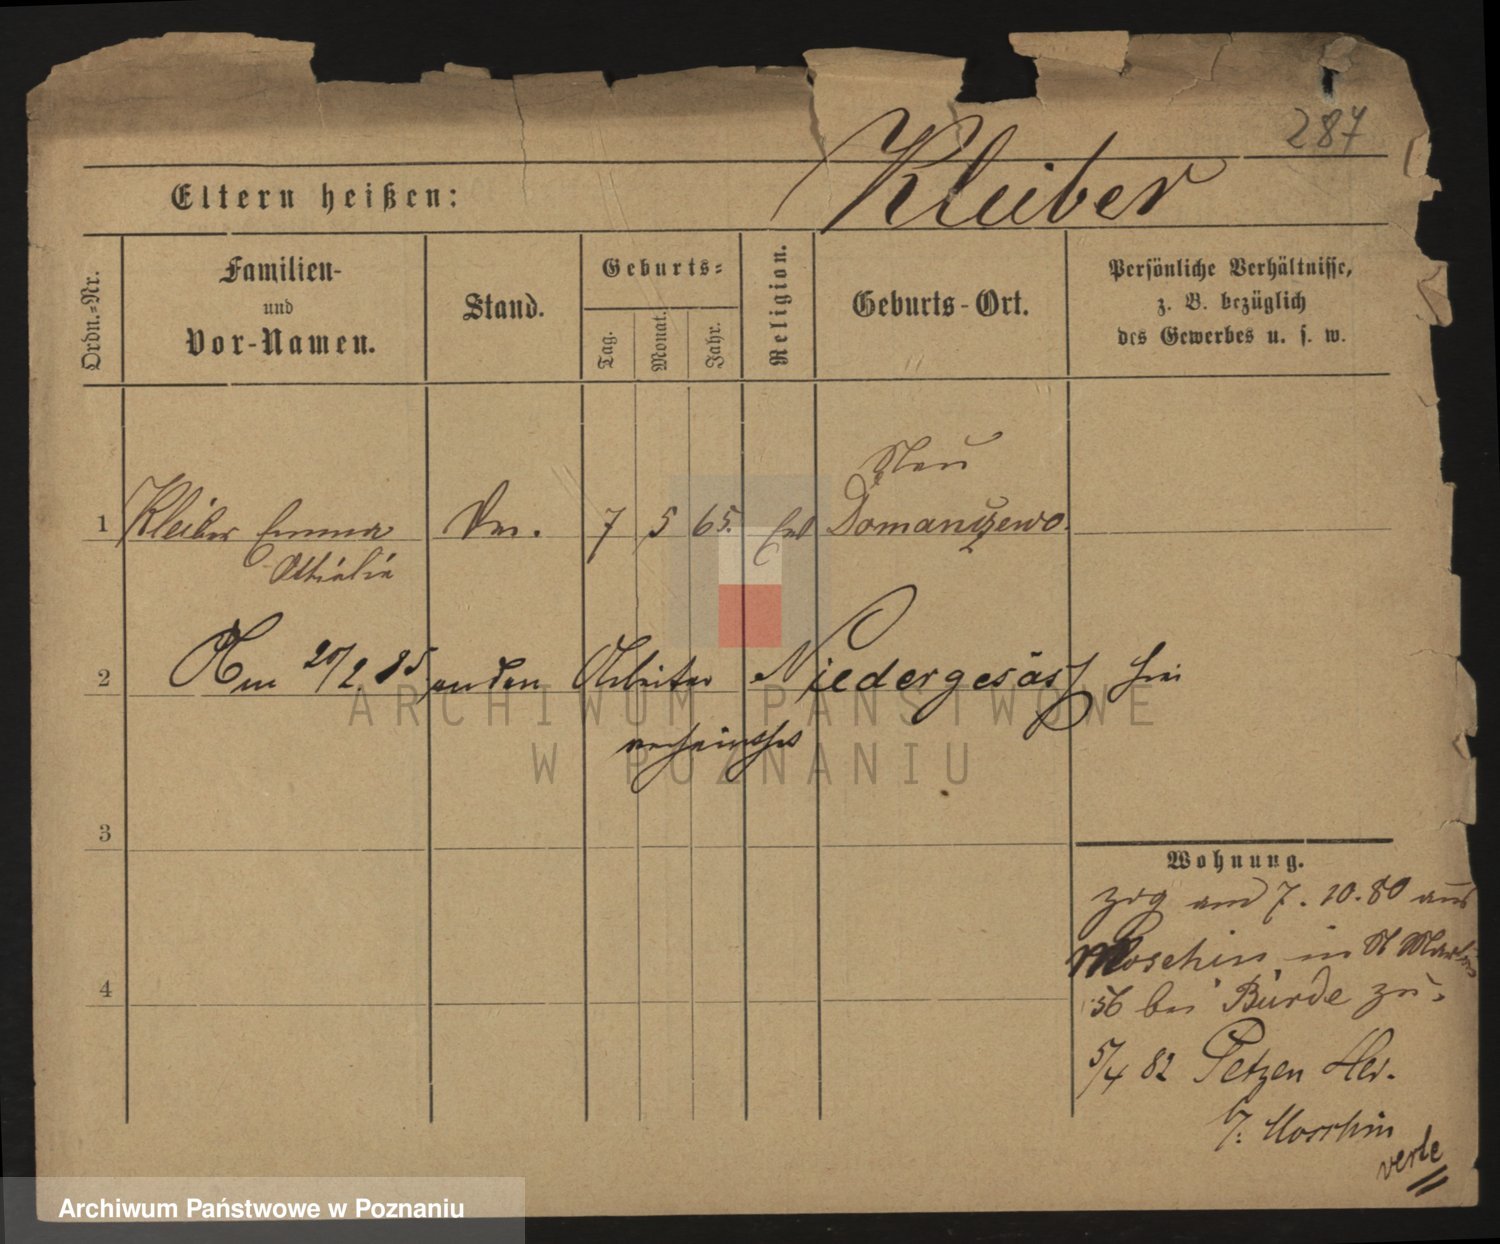 287
Kleiber
Eltern heißen:
Ordn.-Nr.
Familien-
und
Vor-Namen.
Stand.
Geburts-
Tag.
Monat.
Jahr.
Religion.
Geburts-Ort.
Persönliche Verhältnisse,
z. B. bezüglich
des Gewerbes u. s. w.
Neu
1 Kleiber Emma 7 5 65. Domanczewo.
Ottilie
2 Am 20/2 85 an den Arbeiter Niedergesäss hier
verheirathet
ARCHIWUM PAŃSTWOWE
W POZNANIU
3
4
Wohnung.
zog am 7. 10. 80 aus
Moschin in St Martin
56 bei Bürde zu.
5/4 82 Petzen
b/. Moschin
verte
Archiwum Państwowe w Poznaniu